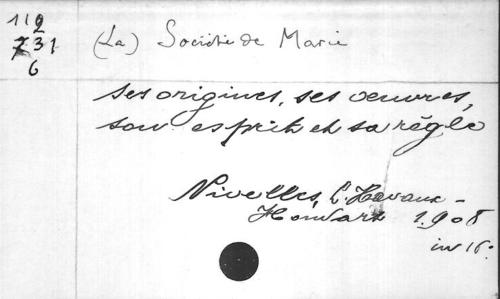 112
731
6
(La) Société de Marie
ses origines, ses oeuvres,
son esprit et sa règle
Nivelles, L. Havaux-
Houdart 1908
in 16: